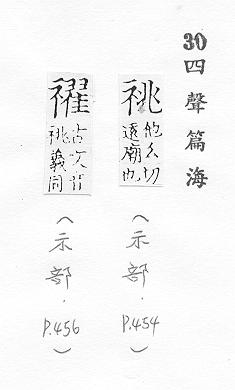 30四聲篇海
祧 他幺切
遠廟也
(示部.P.454)
襬 古文音
祧義同
(示部.P.456)